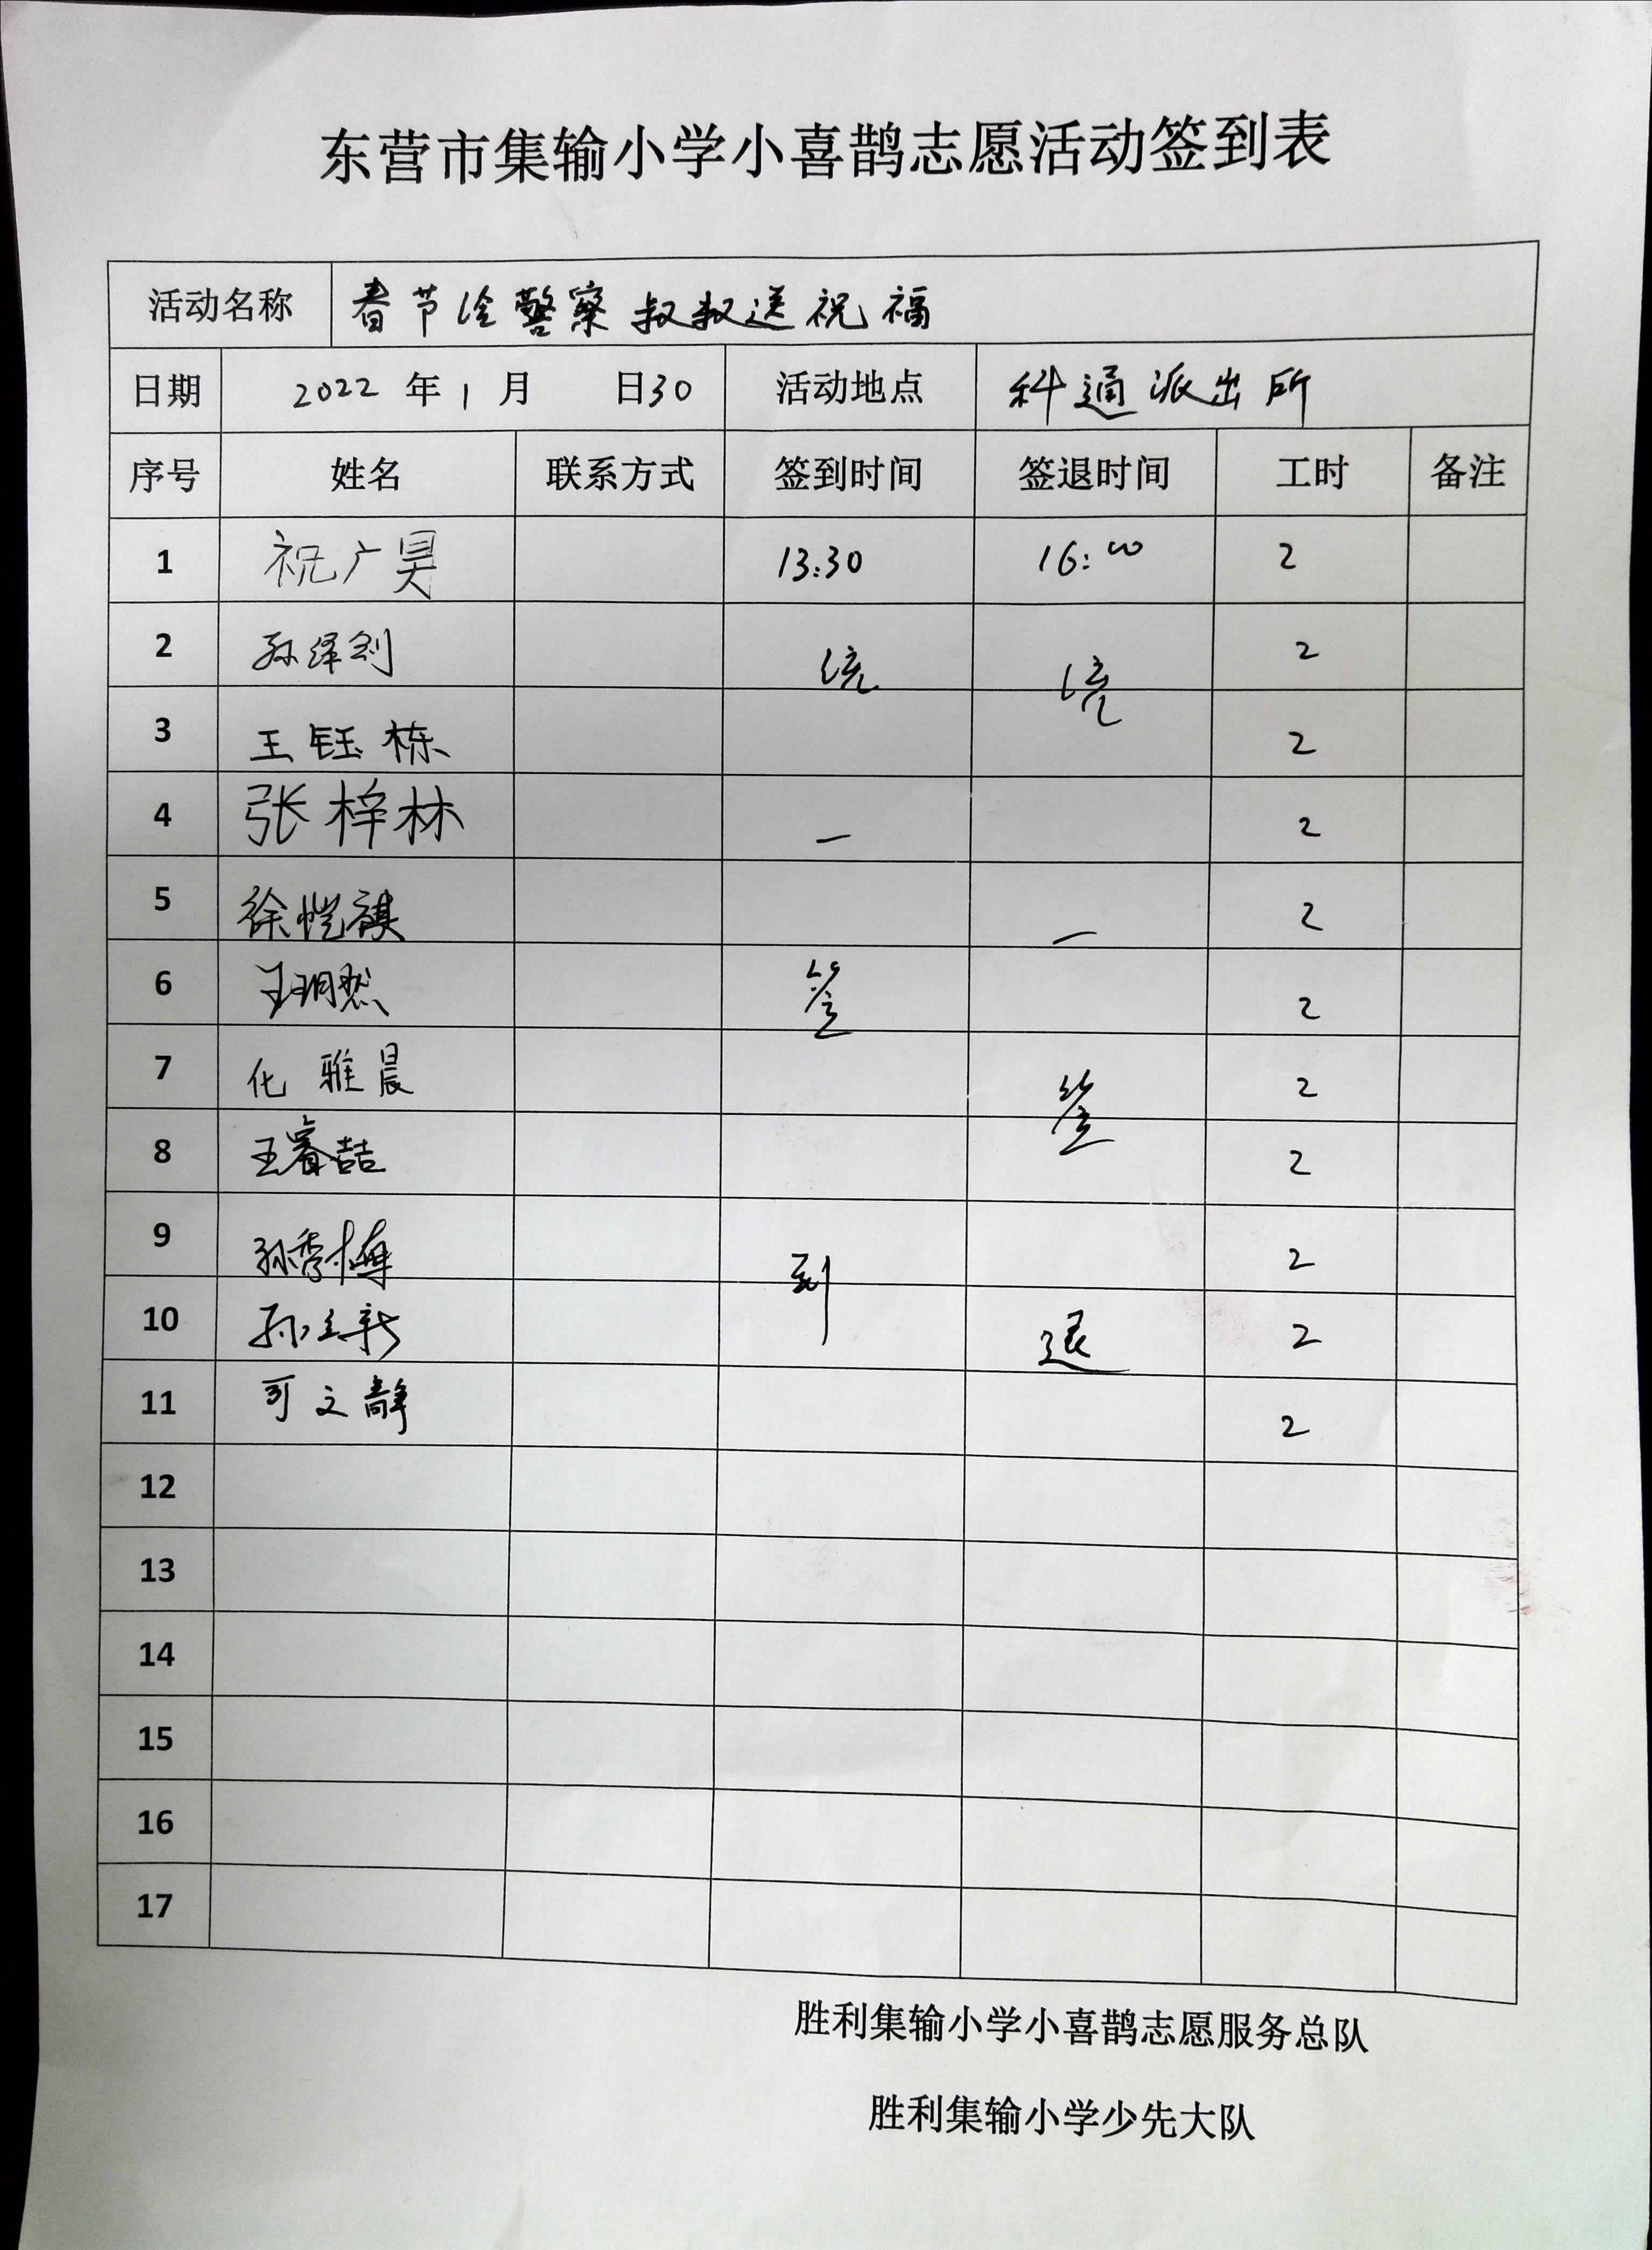 东营市集输小学小喜鹊志愿活动签到表
活动名称 春节给警察叔叔送祝福
日期 2022 年 1 月 日30 活动地点 科通派出所
序号 姓名 联系方式 签到时间 签退时间 工时 备注
1 祝广昊 13:30 16:00 2
2 孙泽剑 统 统 2
3 王钰栋 2
4 张梓林 一 2
5 徐恺祺 一 2
6 王玥然 签 2
7 化雅晨 签 2
8 王睿喆 2
9 孙秀梅 到 2
10 孙立新 退 2
11 可文静 2
12
13
14
15
16
17
胜利集输小学小喜鹊志愿服务总队
胜利集输小学少先大队